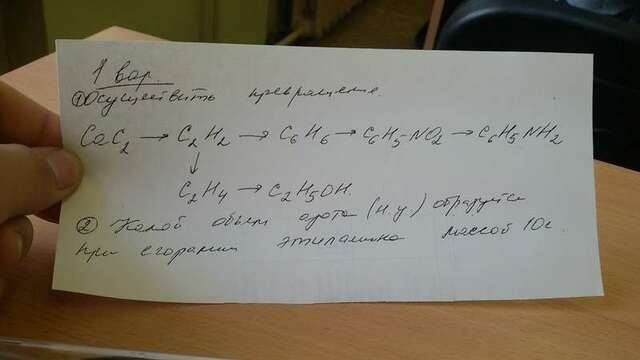 1 вар.
① Осуществить превращение.
CaC2 → C2H2 → C6H6 → C6H5NO2 → C6H5NH2
↓
C2H4 → C2H5OH.
② Какой объем азота (н.у) образуется
при сгорании этиламина массой 10г.